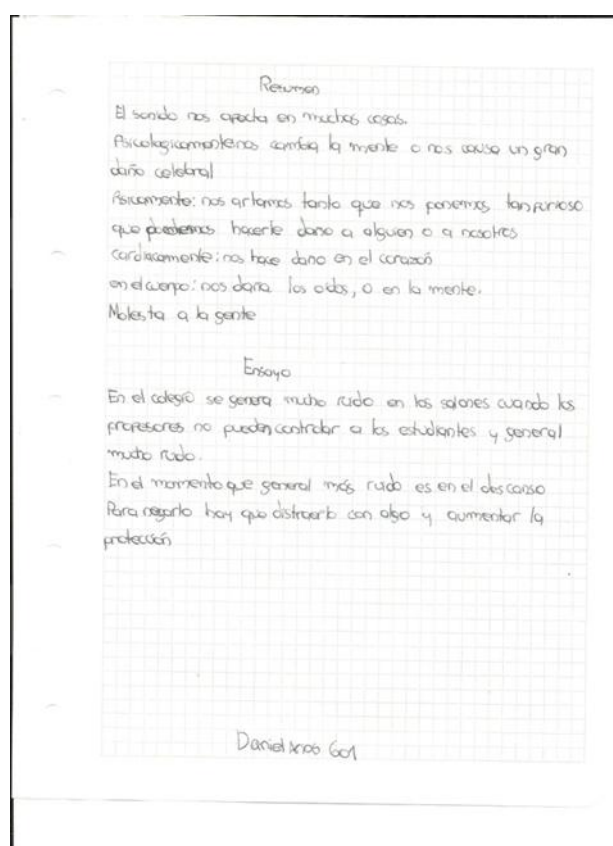 Resumen
El sonido nos afecta en muchas cosas.
Psicologicamente nos cambia la mente o nos causa un gran
daño celebral
Psicamente: nos artamos tanto que nos ponemos tan furioso
que hacerle daño a alguien o a nosotros
cardiacamente: nos hace daño en el corazón
en el cuerpo: nos daria los oidos, o en la mente.
Molesta a la gente
Ensayo
En el colegio se genera mucho ruido en los salones cuando los
profesores no pueden controlar a los estudiantes y general
mucho ruido.
En el momento que general más ruido es en el descanso
Para negarlo hay que distraerlo con algo y aumentar la
protección
Daniel 601